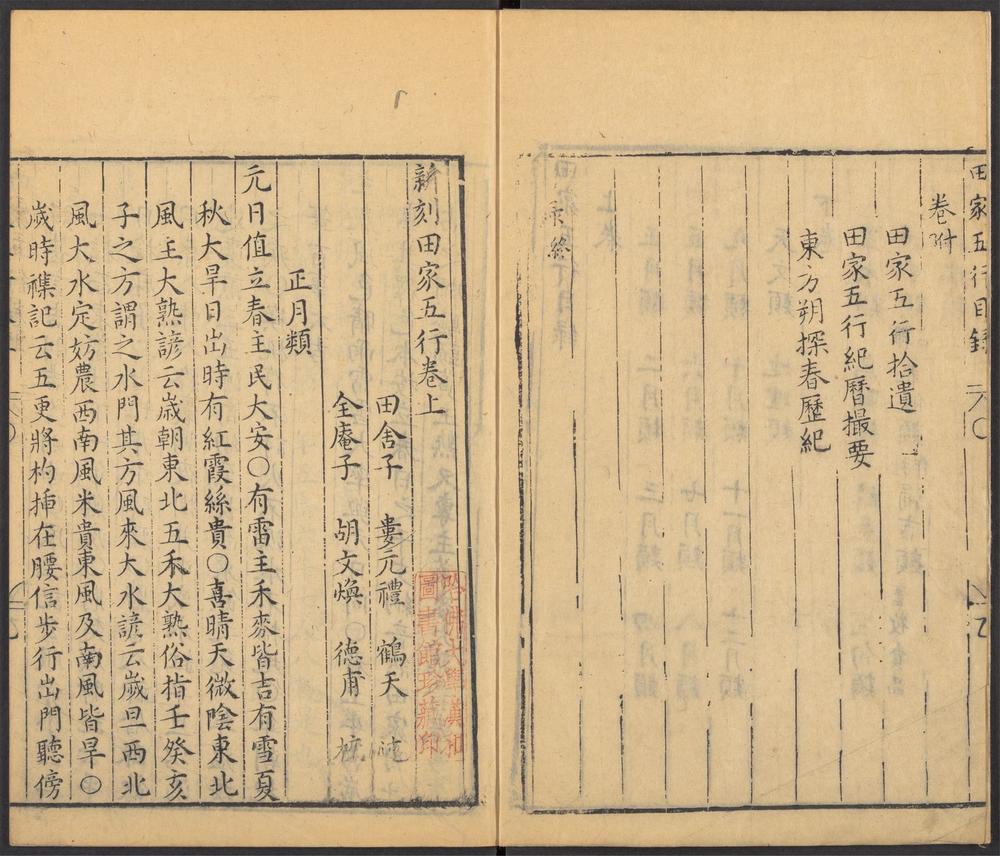 田家五行目錄
卷附
田家五行拾遺
田家五行紀曆撮要
東方朔探春歷紀
錄終
新刻田家五行卷上
田舍子 婁元禮 鶴天
全庵子 胡文煥 德甫 校
正月類
元日值立春主民大安○有雷主禾麥皆吉有雪夏
秋大旱日出時有紅霞絲貴○喜晴天微陰東北
風主大熟諺云歲朝東北五禾大熟俗指壬癸亥
子之方謂之水門其方風來大水諺云歲旦西北
風大水定妨農西南風米貴東風及南風皆旱○
歲時襍記云五更將杓揷在腰信步行出門聽傍
哈佛大學漢和
圖書館珍藏印